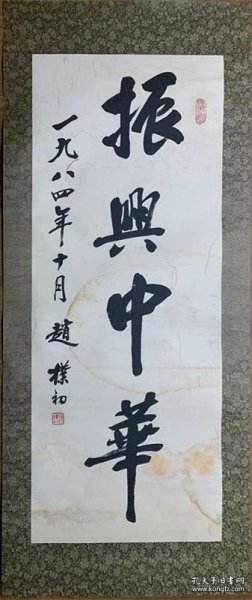 振興中華
一九八四年十月 趙樸初
孔夫子旧书网
www.kongfz.com